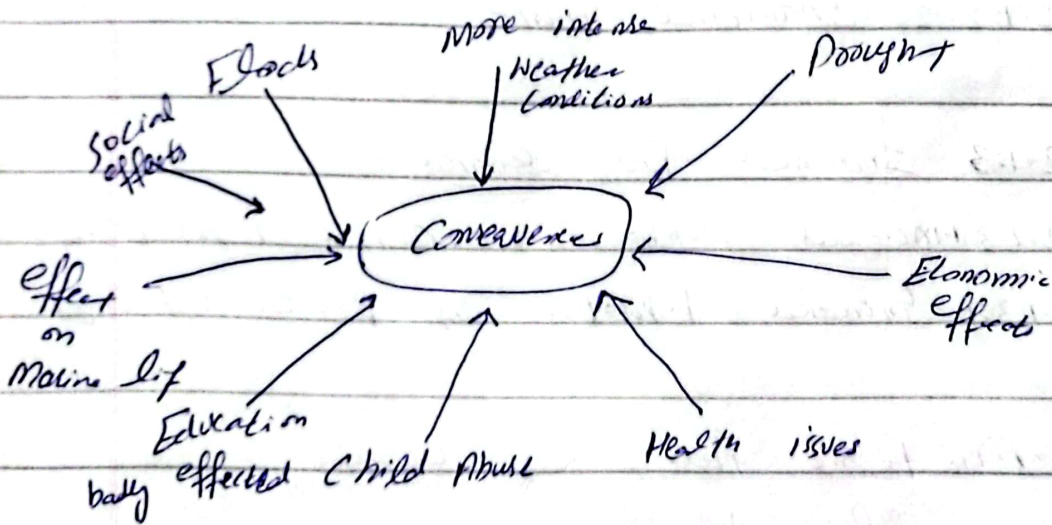 More intense
Weather
Conditions
Drought
Floods
Social
effects
Consequences
effect
on
Marine lif
Economic
effects
Education
badly effected
Child Abuse
Health issues